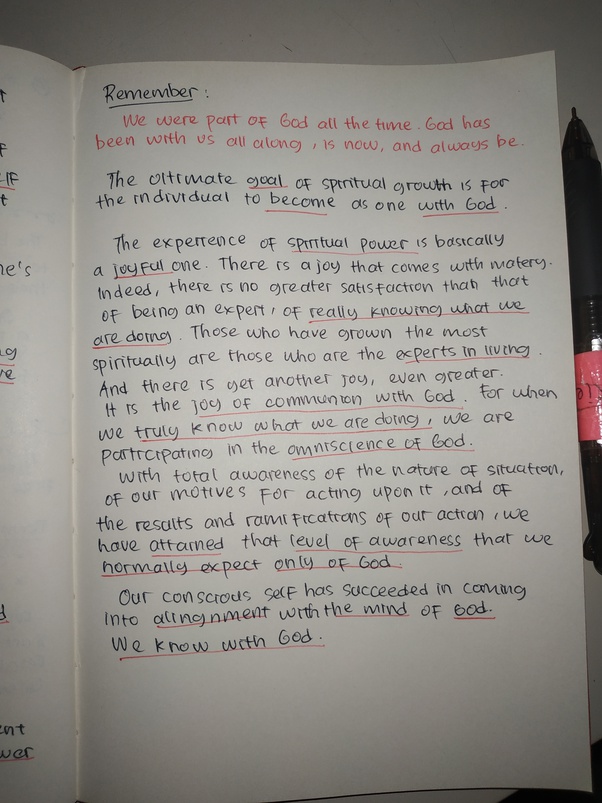 Remember:
We were part of God all the time. God has
been with us all along, is now, and always be.
The ultimate goal of spiritual growth is for
the individual to become as one with God.
The experience of spiritual power is basically
a joyful one. There is a joy that comes with matery.
Indeed, there is no greater satisfaction than that
of being an expert, of really knowing what we
are doing. Those who have grown the most
spiritually are those who are the experts in living.
And there is yet another joy, even greater.
It is the joy of communion with God. For when
we truly know what we are doing, we are
participating in the omniscience of God.
With total awareness of the nature of situation,
of our motives for acting upon it, and of
the results and ramifications of our action, we
have attained that level of awareness that we
normally expect only of God.
Our conscious self has succeeded in coming
into alingnment with the mind of God.
We know with God.